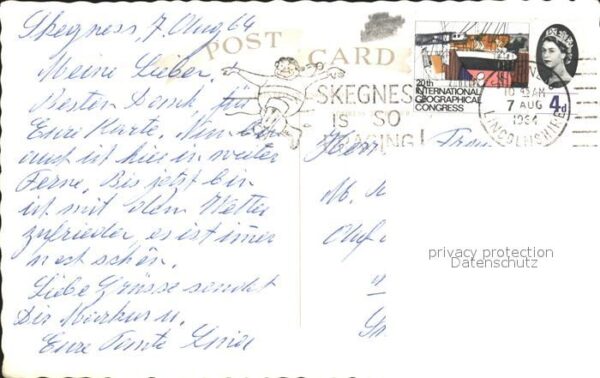 Skegness, 7. Aug 64
POST CARD
Meine Lieben.
Besten Dank, für
Eure Karte. Nun bin
auch ist hier in weiter
Ferne. Bis jetzt bin
ist mit dem Wetter
zufrieden, es ist immer
noch schön.
Liebe Grüsse sendet
Dir Markus u.
Eure Tante
20th
INTERNATIONAL
GEOGRAPHICAL
CONGRESS
4d
SKEGNESS
IS SO
BRACING!
7 AUG
1964
LINCOLNSHIRE
Herr
M.
privacy protection
Datenschutz